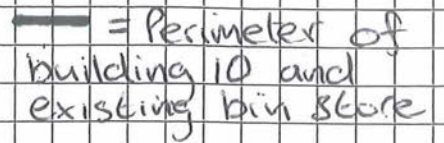 = Perimeter of
building 10 and
existing bin store